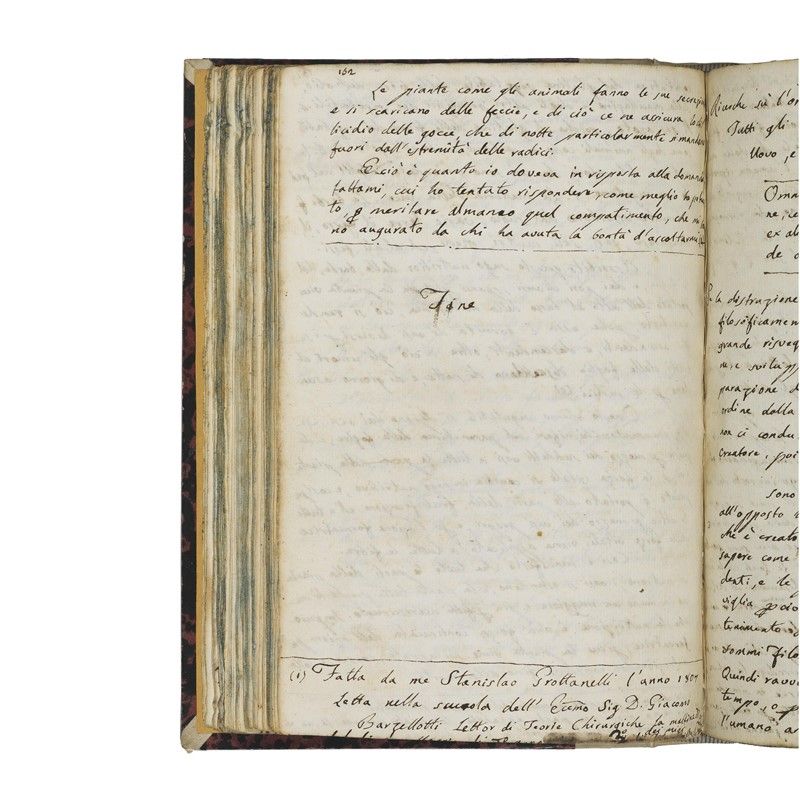 162
Le piante come gli animali fanno le sue secrezio
e si scaricano dalle feccie, e di ciò ce ne assicura lo stil
licidio delle gocce, che di notte particolarmente si mandano
fuori dall'estremità delle radici.
E ciò è quanto io doveva in risposta alla domanda
fattami, cui ho tentato rispondere, come meglio ho potu
to, e meritare almanco quel compatimento, che mi
no augurato da chi ha avuta la bontà d'ascoltarmi
Fine
(1) Fatta da me Stanislao Grottanelli l'anno 1807
Letta nella scuola dell' Ecemo Sig. D. Giacomo
Barzellotti Lettor di Teorie Chirurgiche la mattina
2º des mes
Ricerche sù l'or
Tutti gli
Uovo, e
Omn
ne, ce
ex ali
de o
la distrazione
filosoficamen
grande risveg
nere svilupp
parazione d
ordine dalla
non ci condu
Creatore, poi
sono
all'opposto
che è creato
sapere come
denti, e le
viglia
tenimento
uomini Filo
Quindi ravv
tempo, o p
l'umano a